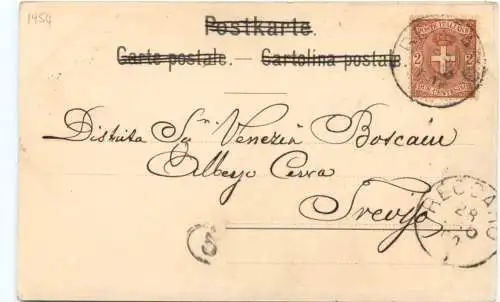 1454
Postkarte.
Carte postale. — Cartolina postale.
POSTE ITALIANE
2 2
DUE CENTESIMI
Distinta Sig.na Venezia Boscain
Albergo Cerva
Treviso
RECOARO
28
5